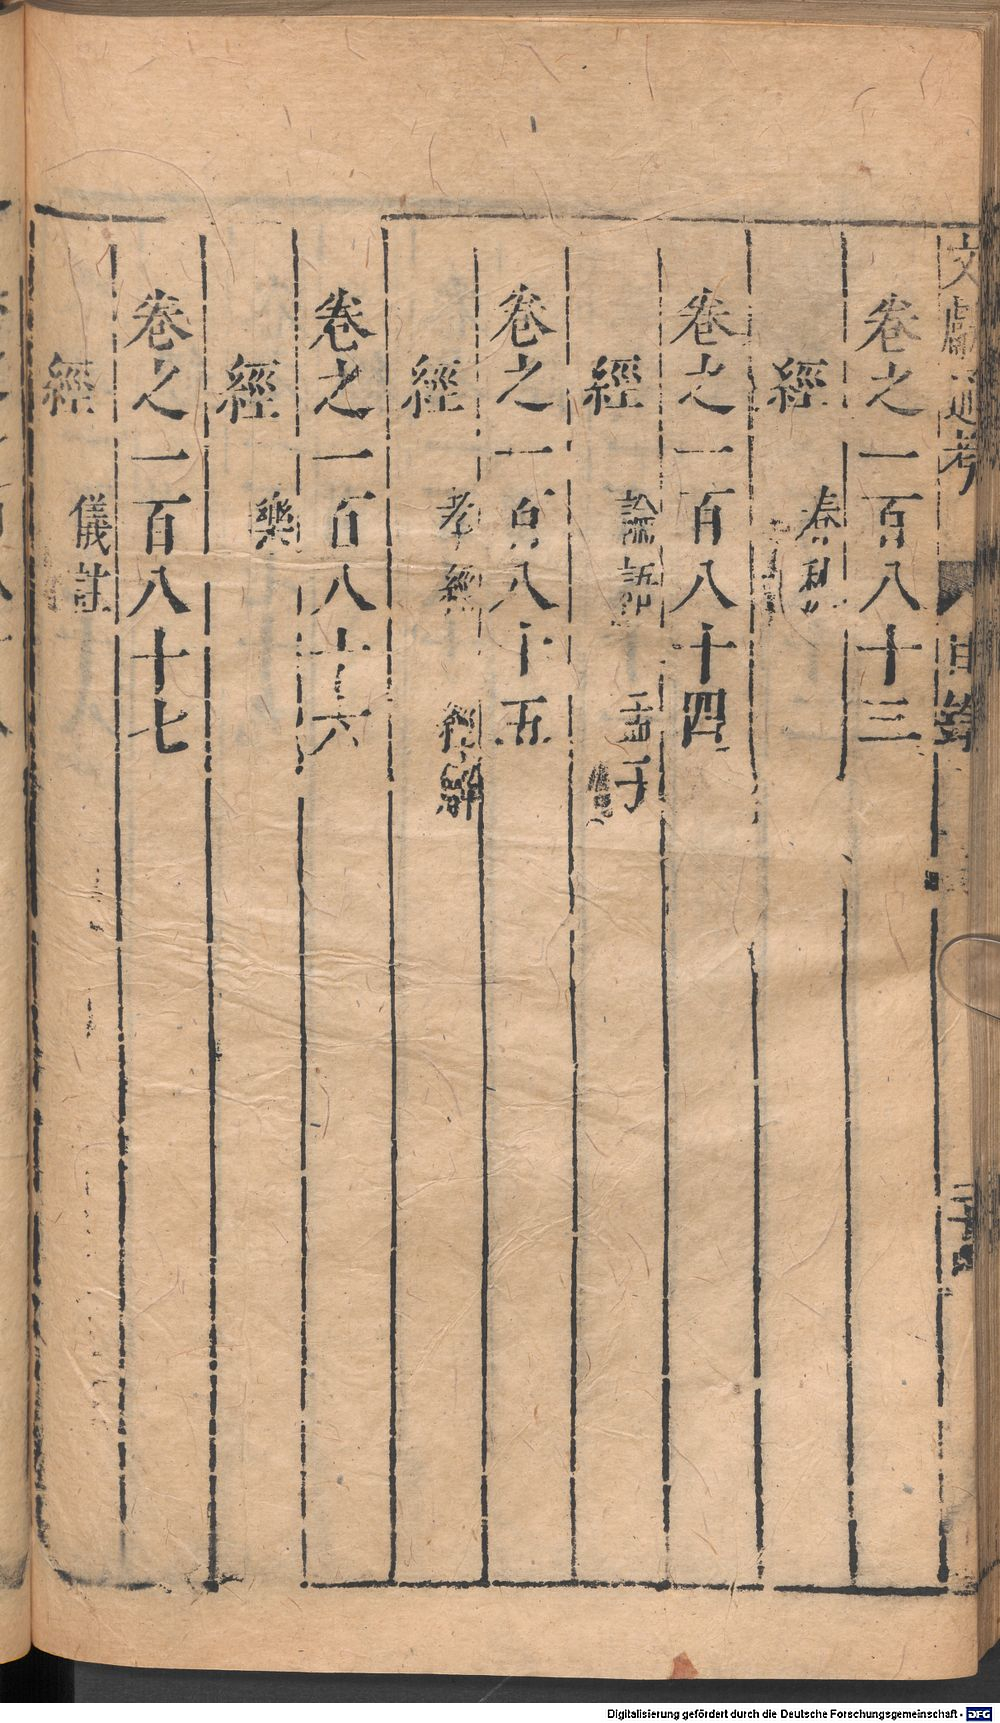 文獻通考 目錄
卷之一百八十三
經 春秋
卷之一百八十四
經 論語 孟子
卷之一百八十五
經 孝經 經解
卷之一百八十六
經 樂
卷之一百八十七
經 儀註
Digitalisierung gefördert durch die Deutsche Forschungsgemeinschaft - DFG